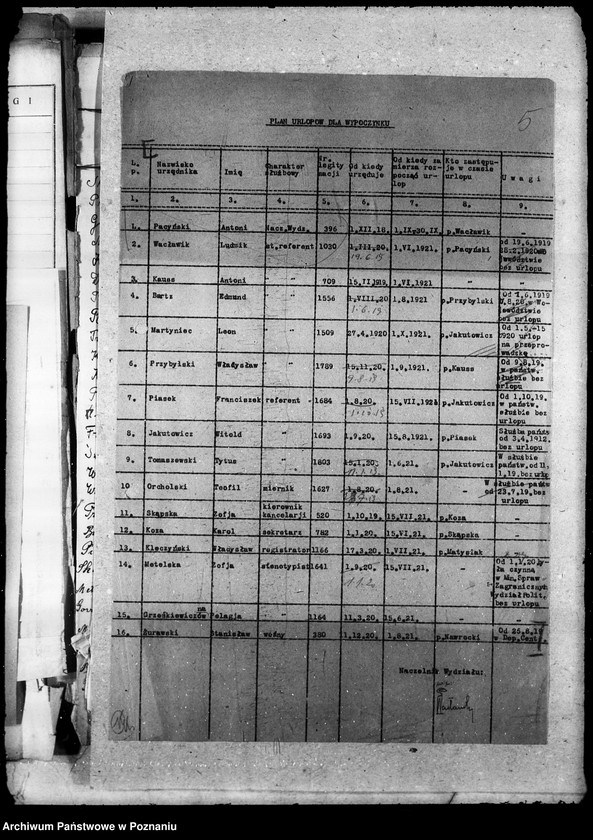 G I
5
PLAN URLOPÓW DLA WYPOCZYNKU
L. p. Nazwisko urzędnika Imię Charakter służbowy Nr. legity macji Od kiedy urzęduje Od kiedy za mierza roz- począć ur- lop Kto zastępu- je w czasie urlopu U w a g i
1. 2. 3. 4. 5. 6. 7. 8. 9.
1. Pacyński Antoni Nacz.Wydz. 396 1.XII.18. 1.IX-30.IX. p.Wacławik -
2. Wacławik Ludwik st.referent 1030 1.III.20. 19.6.19 1.VI.1921. p.Pacyński od 19.6.1919 bez urlopu
3. Kauss Antoni -"- 709 15.VI.1919. 1.VI.1921 - -
4. Bartz Edmund -"- 1556 1.VIII.20 1.6.19 1.8.1921 p.Przybylski Od 1.6.1919 w Wo- jewództwie bez urlopu
5. Martyniec Leon -"- 1509 27.4.1920 1.X.1921. p.Jakutowicz Od 1.5.-15 1920 urlop na przepro- wadzkę
6. Przybylski Władysław -"- 1789 15.11.20. 9.8.19 1.9.1921. p.Kauss Od 9.8.19. w państw. służbie bez urlopu
7. Piasek Franciszek referent - 1684 1.8.20. 1.10.19 15.VII.1921 p.Jakutowicz Od 1.10.19. w państw. służbie bez urlopu
8. Jakutowicz Witold -"- 1693 1.9.20. 15.8.1921. p.Piasek Służba państw od 3.4.1912. bez urlopu
9. Tomaszewski Tytus -"- 1803 15.1.20. 1.6.21. p.Jakutowicz W służbie państw.od 11. 1.19.bez urlp
10 Orcholski Teofil miernik 1627 1.8.20. 1.8.21. - W służbie państw od 23.7.19.bez urlopu
11. Skąpska Zofja kierownik kancelarji 520 1.10.19. 15.VII.21. p.Koza -
12. Koza Karol sekretarz 782 1.1.20. 15.VI.21. p.Skąpska -
13. Kleczyński Władysław registrator 1166 17.3.20. 1.VII.21. p.Matysiak -
14. Metelska Zofja stenotypist 1641 1.9.20. 1.1.20 15.VII.21. - Od 1.1.20 by- ła czynną w Mn.Spraw Zagranicznych Wydział Polit. bez urlopu
15. Grześkiewiczówna Pelagja 1164 11.3.20. 15.6.21. - -
16. Żurawski Stanisław woźny 380 1.12.20. 1.8.21. p.Nawrocki Od 25.8.19 w Dep.Centr.
Naczelnik Wydziału:
Archiwum Państwowe w Poznaniu